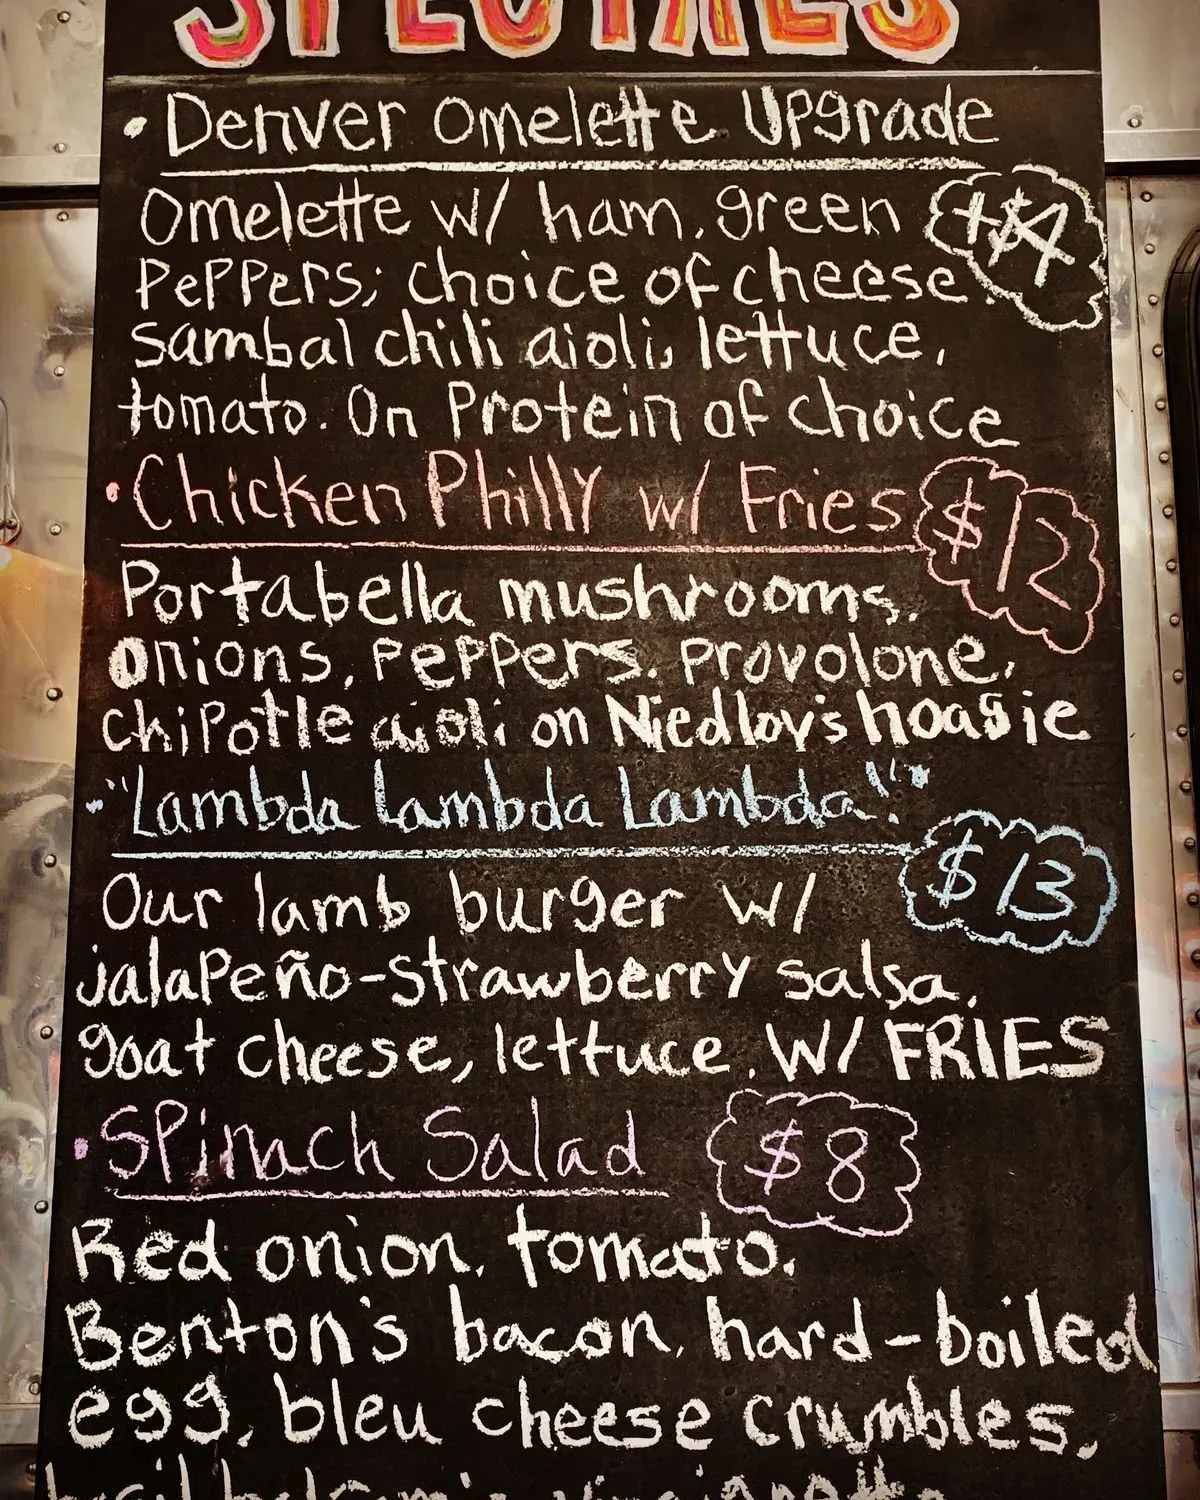 SPECIALS
• Denver Omelette Upgrade
Omelette w/ ham, green
+$4
Peppers; choice of cheese,
sambal chili aioli, lettuce,
tomato. On Protein of choice
• Chicken Philly w/ Fries
$12
Portabella mushrooms,
onions, peppers, provolone,
chipotle aioli on Niedlov's hoagie
• "Lambda Lambda Lambda!"
$13
Our lamb burger w/
jalapeño-strawberry salsa,
goat cheese, lettuce. W/ FRIES
• Spinach Salad $8
Red onion, tomato,
Benton's bacon, hard-boiled
egg, bleu cheese crumbles,